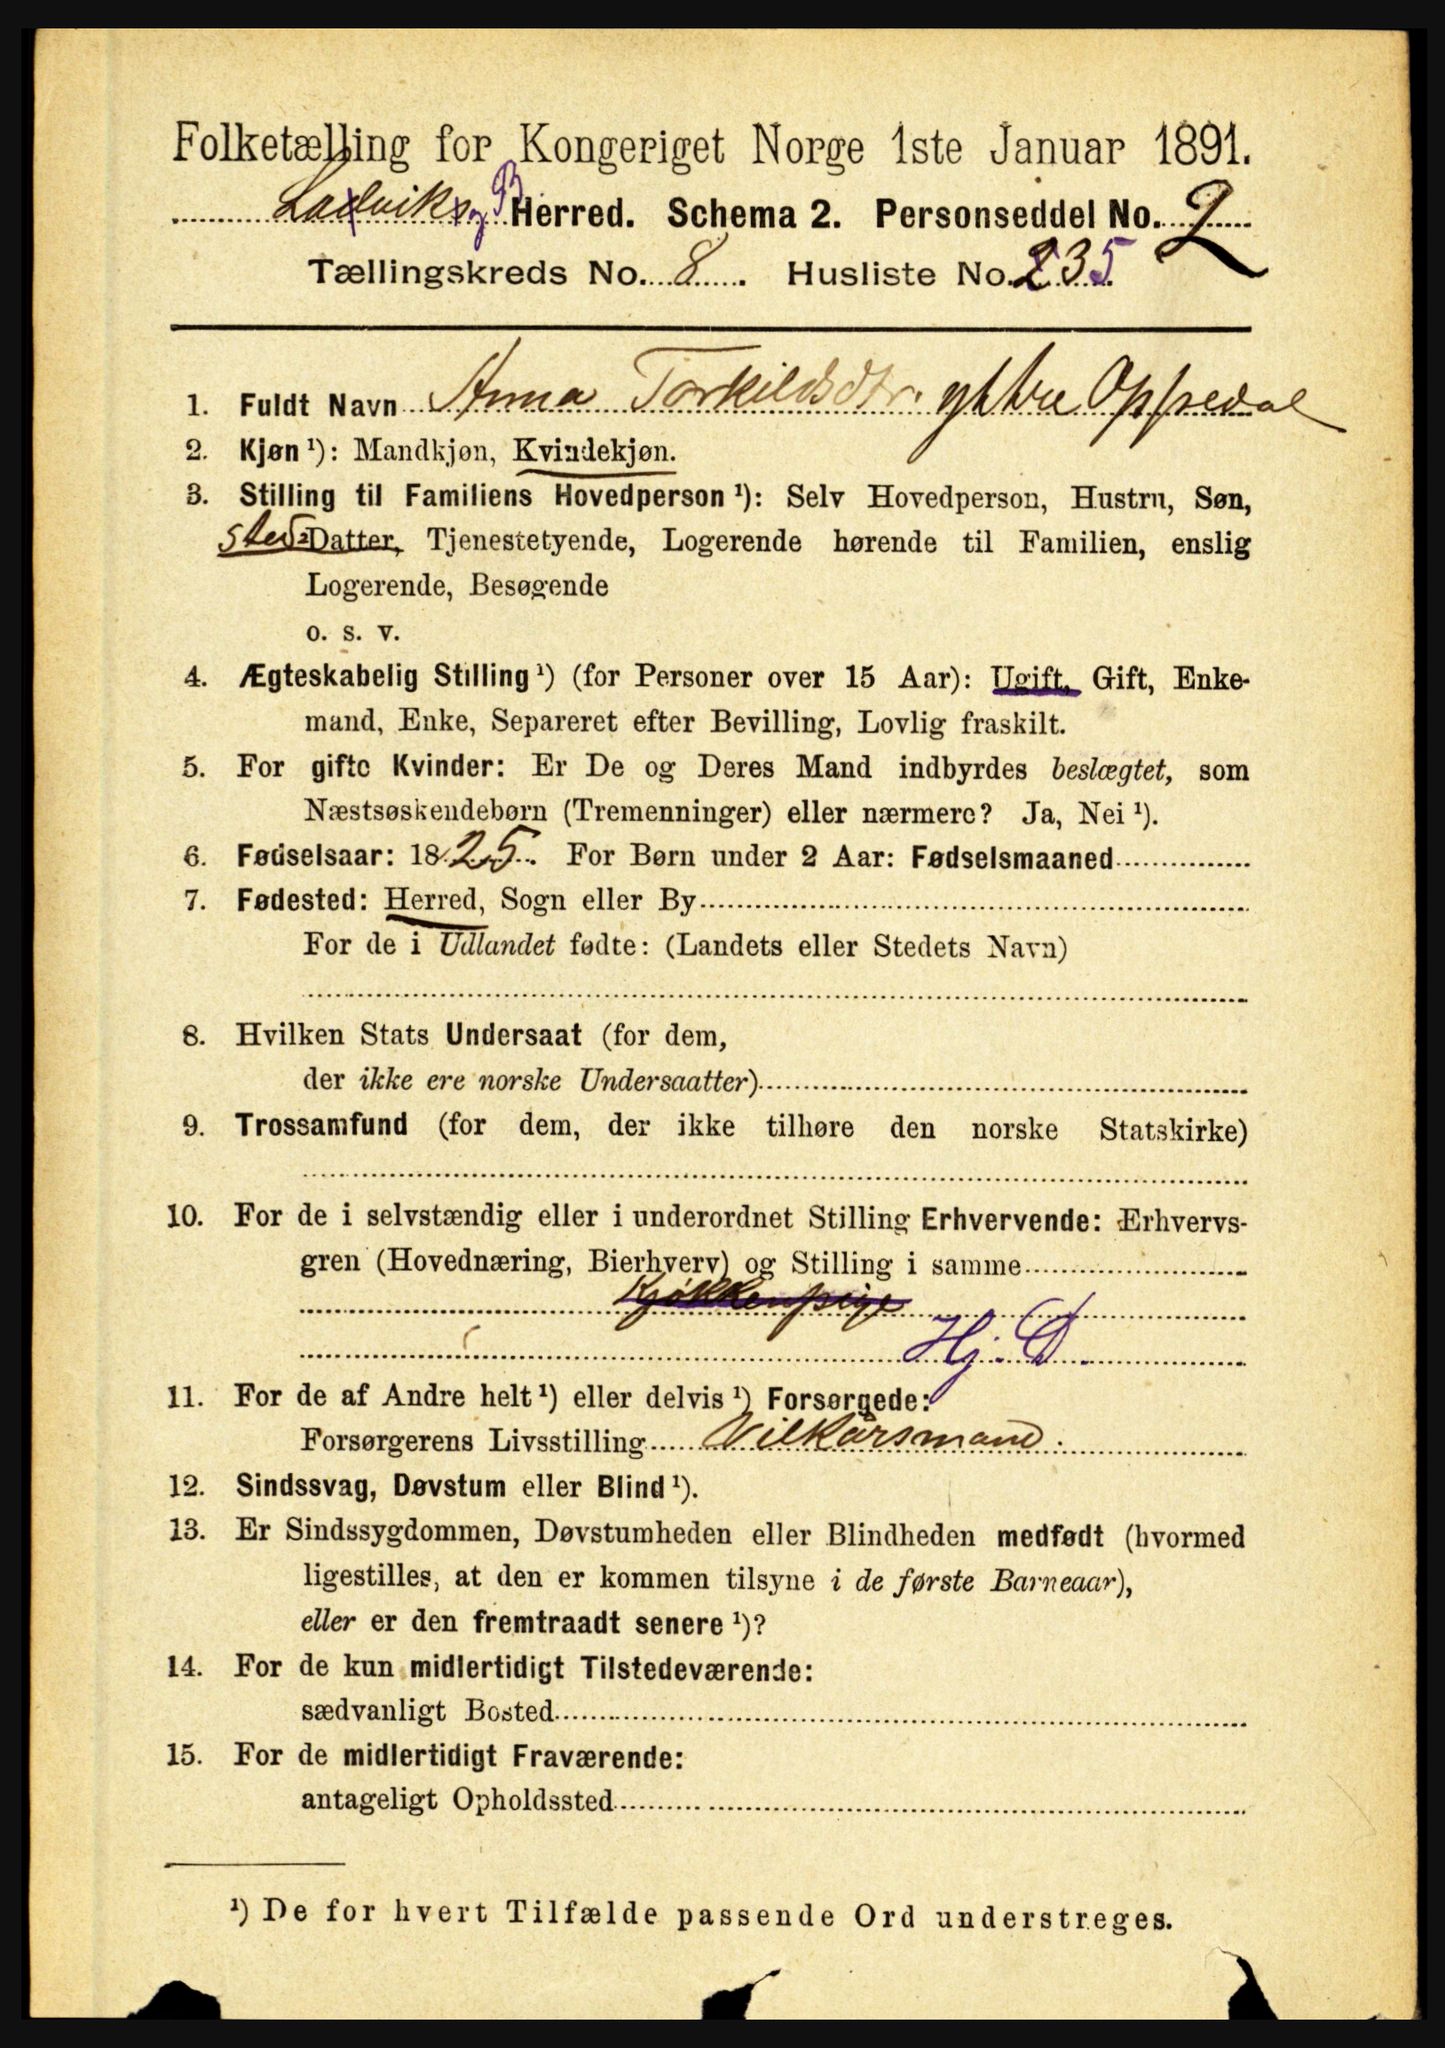 Folketælling for Kongeriget Norge 1ste Januar 1891.
Ladvik og B Herred. Schema 2. Personseddel No. 2
Tællingskreds No. 8. Husliste No. 235
1. Fuldt Navn Anna Torkildsdtr. yttre Oppedal
2. Kjøn ¹): Mandkjøn, Kvindekjøn.
3. Stilling til Familiens Hovedperson ¹): Selv Hovedperson, Hustru, Søn,
Sted-Datter, Tjenestetyende, Logerende hørende til Familien, enslig
Logerende, Besøgende
o. s. v.
4. Ægteskabelig Stilling ¹) (for Personer over 15 Aar): Ugift, Gift, Enke-
mand, Enke, Separeret efter Bevilling, Lovlig fraskilt.
5. For gifte Kvinder: Er De og Deres Mand indbyrdes beslægtet, som
Næstsøskendebørn (Tremenninger) eller nærmere? Ja, Nei ¹).
6. Fødselsaar: 1825. For Børn under 2 Aar: Fødselsmaaned
7. Fødested: Herred, Sogn eller By
For de i Udlandet fødte: (Landets eller Stedets Navn)
8. Hvilken Stats Undersaat (for dem,
der ikke ere norske Undersaatter)
9. Trossamfund (for dem, der ikke tilhøre den norske Statskirke)
10. For de i selvstændig eller i underordnet Stilling Erhvervende: Erhvervs-
gren (Hovednæring, Bierhverv) og Stilling i samme
Kjøkkenpige
Hj. D.
11. For de af Andre helt ¹) eller delvis ¹) Forsørgede:
Forsørgerens Livsstilling Vilkårsmand.
12. Sindssvag, Døvstum eller Blind ¹).
13. Er Sindssygdommen, Døvstumheden eller Blindheden medfødt (hvormed
ligestilles, at den er kommen tilsyne i de første Barneaar),
eller er den fremtraadt senere ¹)?
14. For de kun midlertidigt Tilstedeværende:
sædvanligt Bosted
15. For de midlertidigt Fraværende:
antageligt Opholdssted
¹) De for hvert Tilfælde passende Ord understreges.